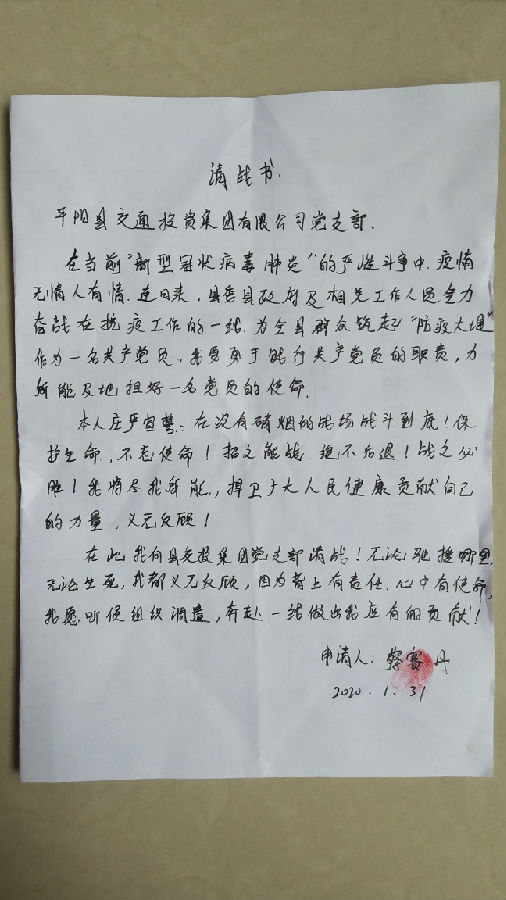 请战书.
平阳县交通投资集团有限公司党支部.
在当前"新型冠状病毒肺炎"的严峻斗争中,疫情
无情人有情.连日来,县委县政府及相关工作人员全力
奋战在抗疫工作的一线.为全县群众筑起"防疫大堤"
作为一名共产党员,我要勇于践行共产党员的职责,力
所能及地担好一名党员的使命.
本人庄严宣誓:在没有硝烟的战场战斗到底!保
护生命,不忘使命!招之能战.绝不后退!战之必
胜!我将尽我所能,捍卫广大人民健康贡献自己
的力量,义无反顾!
在此我向县交投集团党支部请战!无论驰援哪里,
无论生死,我都义无反顾,因为肩上有责任.心中有使命,
我愿听从组织调遣,奔赴一线做出我应有的贡献!
申请人:丹
2020.1.31